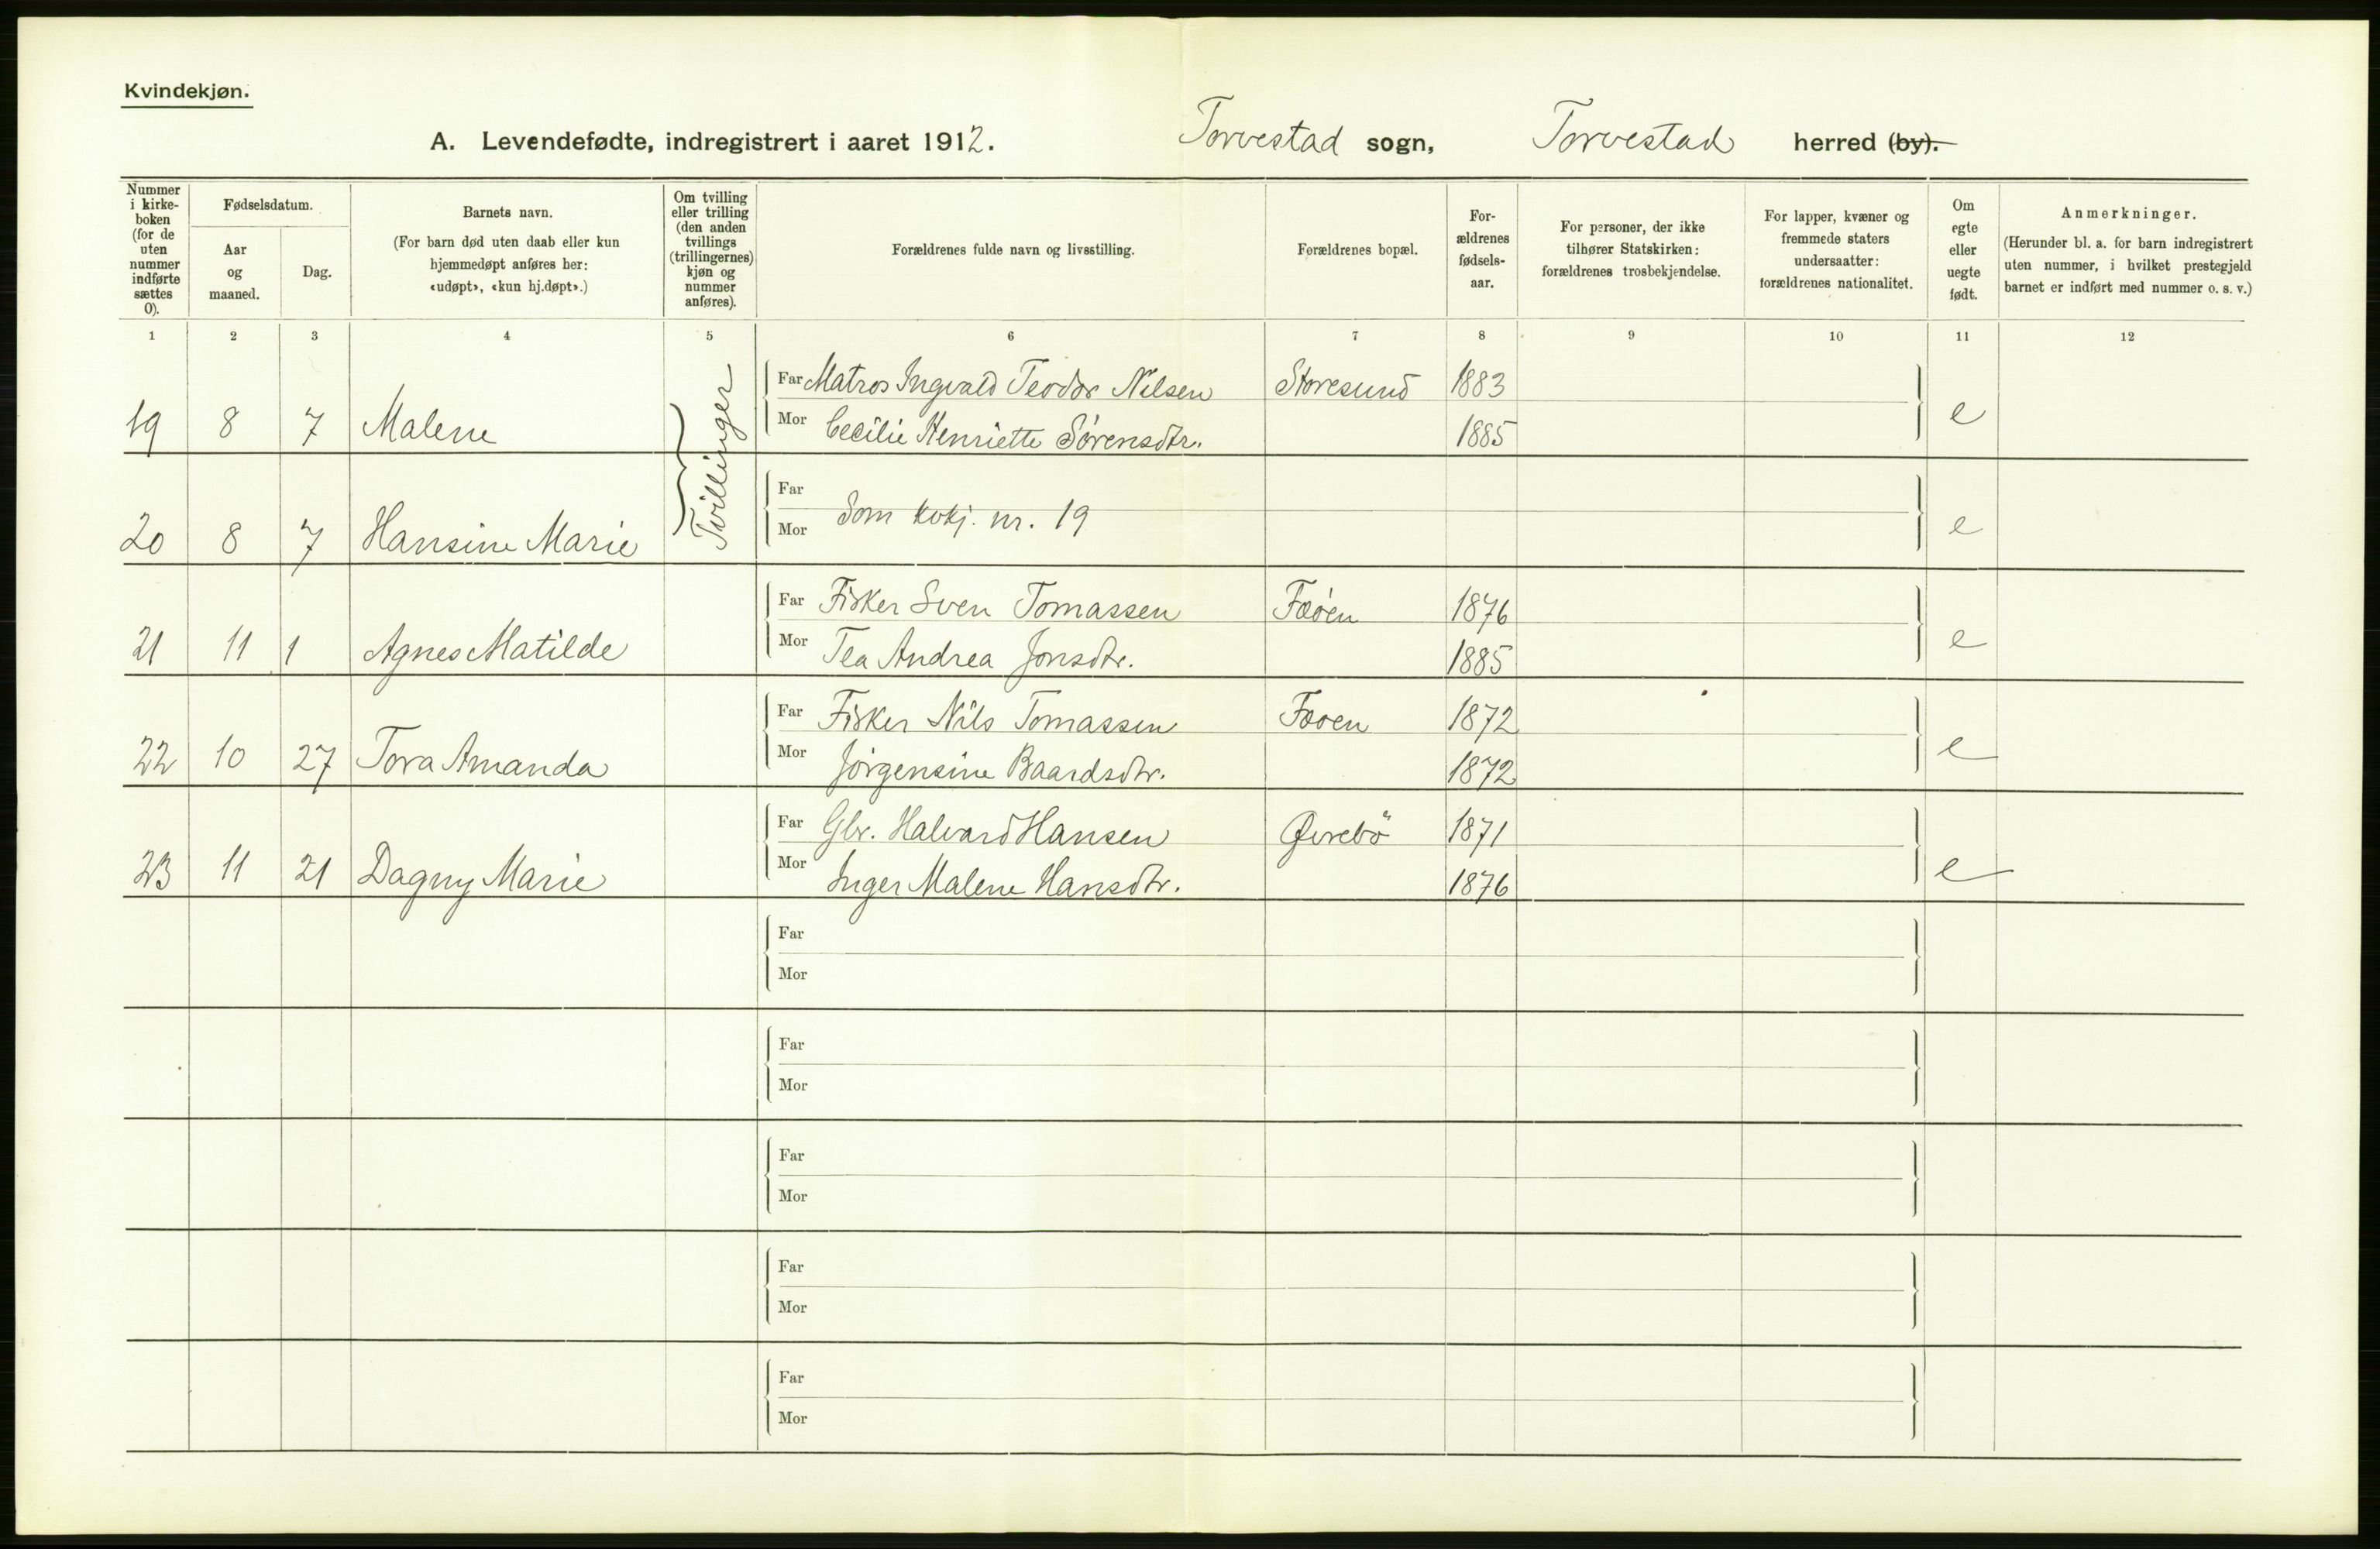 Kvindekjøn.
A. Levendefødte, indregistrert i aaret 1912. Torvestad sogn, Torvestad herred (by).
Nummer i kirke-boken (for de uten nummer indførte sættes 0).
Fødselsdatum.
Aar og maaned.
Dag.
Barnets navn.
(For barn død uten daab eller kun hjemmedøpt anføres her: «udøpt», «kun hj.døpt».)
Om tvilling eller trilling (den anden tvillings (trillingernes) kjøn og nummer anføres).
Forældrenes fulde navn og livsstilling.
Forældrenes bopæl.
For-ældrenes fødsels-aar.
For personer, der ikke tilhører Statskirken: forældrenes trosbekjendelse.
For lapper, kvæner og fremmede staters undersaatter: forældrenes nationalitet.
Om egte eller uegte født.
Anmerkninger.
(Herunder bl. a. for barn indregistrert uten nummer, i hvilket prestegjeld barnet er indført med nummer o. s. v.)
1 2 3 4 5 6 7 8 9 10 11 12
Far Matros Ingvald Teodor Nilsen Storesund 1883
19 8 7 Malene Tvillinger Mor Cecilie Henriette Sörensdtr. 1885 e
Far
20 8 7 Hansine Marie Som kvkj. nr. 19 e
Mor
Far Fisker Sven Tomassen Føöen 1876
21 11 1 Agnes Matilde Mor Tea Andrea Jonsdtr. 1885 e
Far Fisker Nils Tomassen Føoen 1872
22 10 27 Tora Amanda Mor Jörgensine Baardsdtr. 1872 e
Far Gbr. Halvard Hansen Øvrebö 1871
23 11 21 Dagny Marie Mor Inger Malene Hansdtr. 1876 e
Far
Mor
Far
Mor
Far
Mor
Far
Mor
Far
Mor